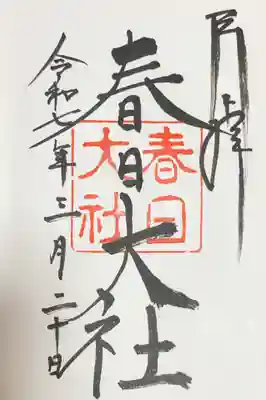 月拝
春日大社
春日
大社
令和七年三月二十日